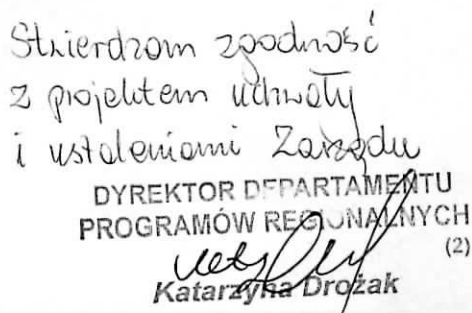 Stwierdzam zgodność
z projektem uchwały
i ustaleniami Zarządu
DYREKTOR DEPARTAMENTU
PROGRAMÓW REGIONALNYCH
(2)
Katarzyna Drożak